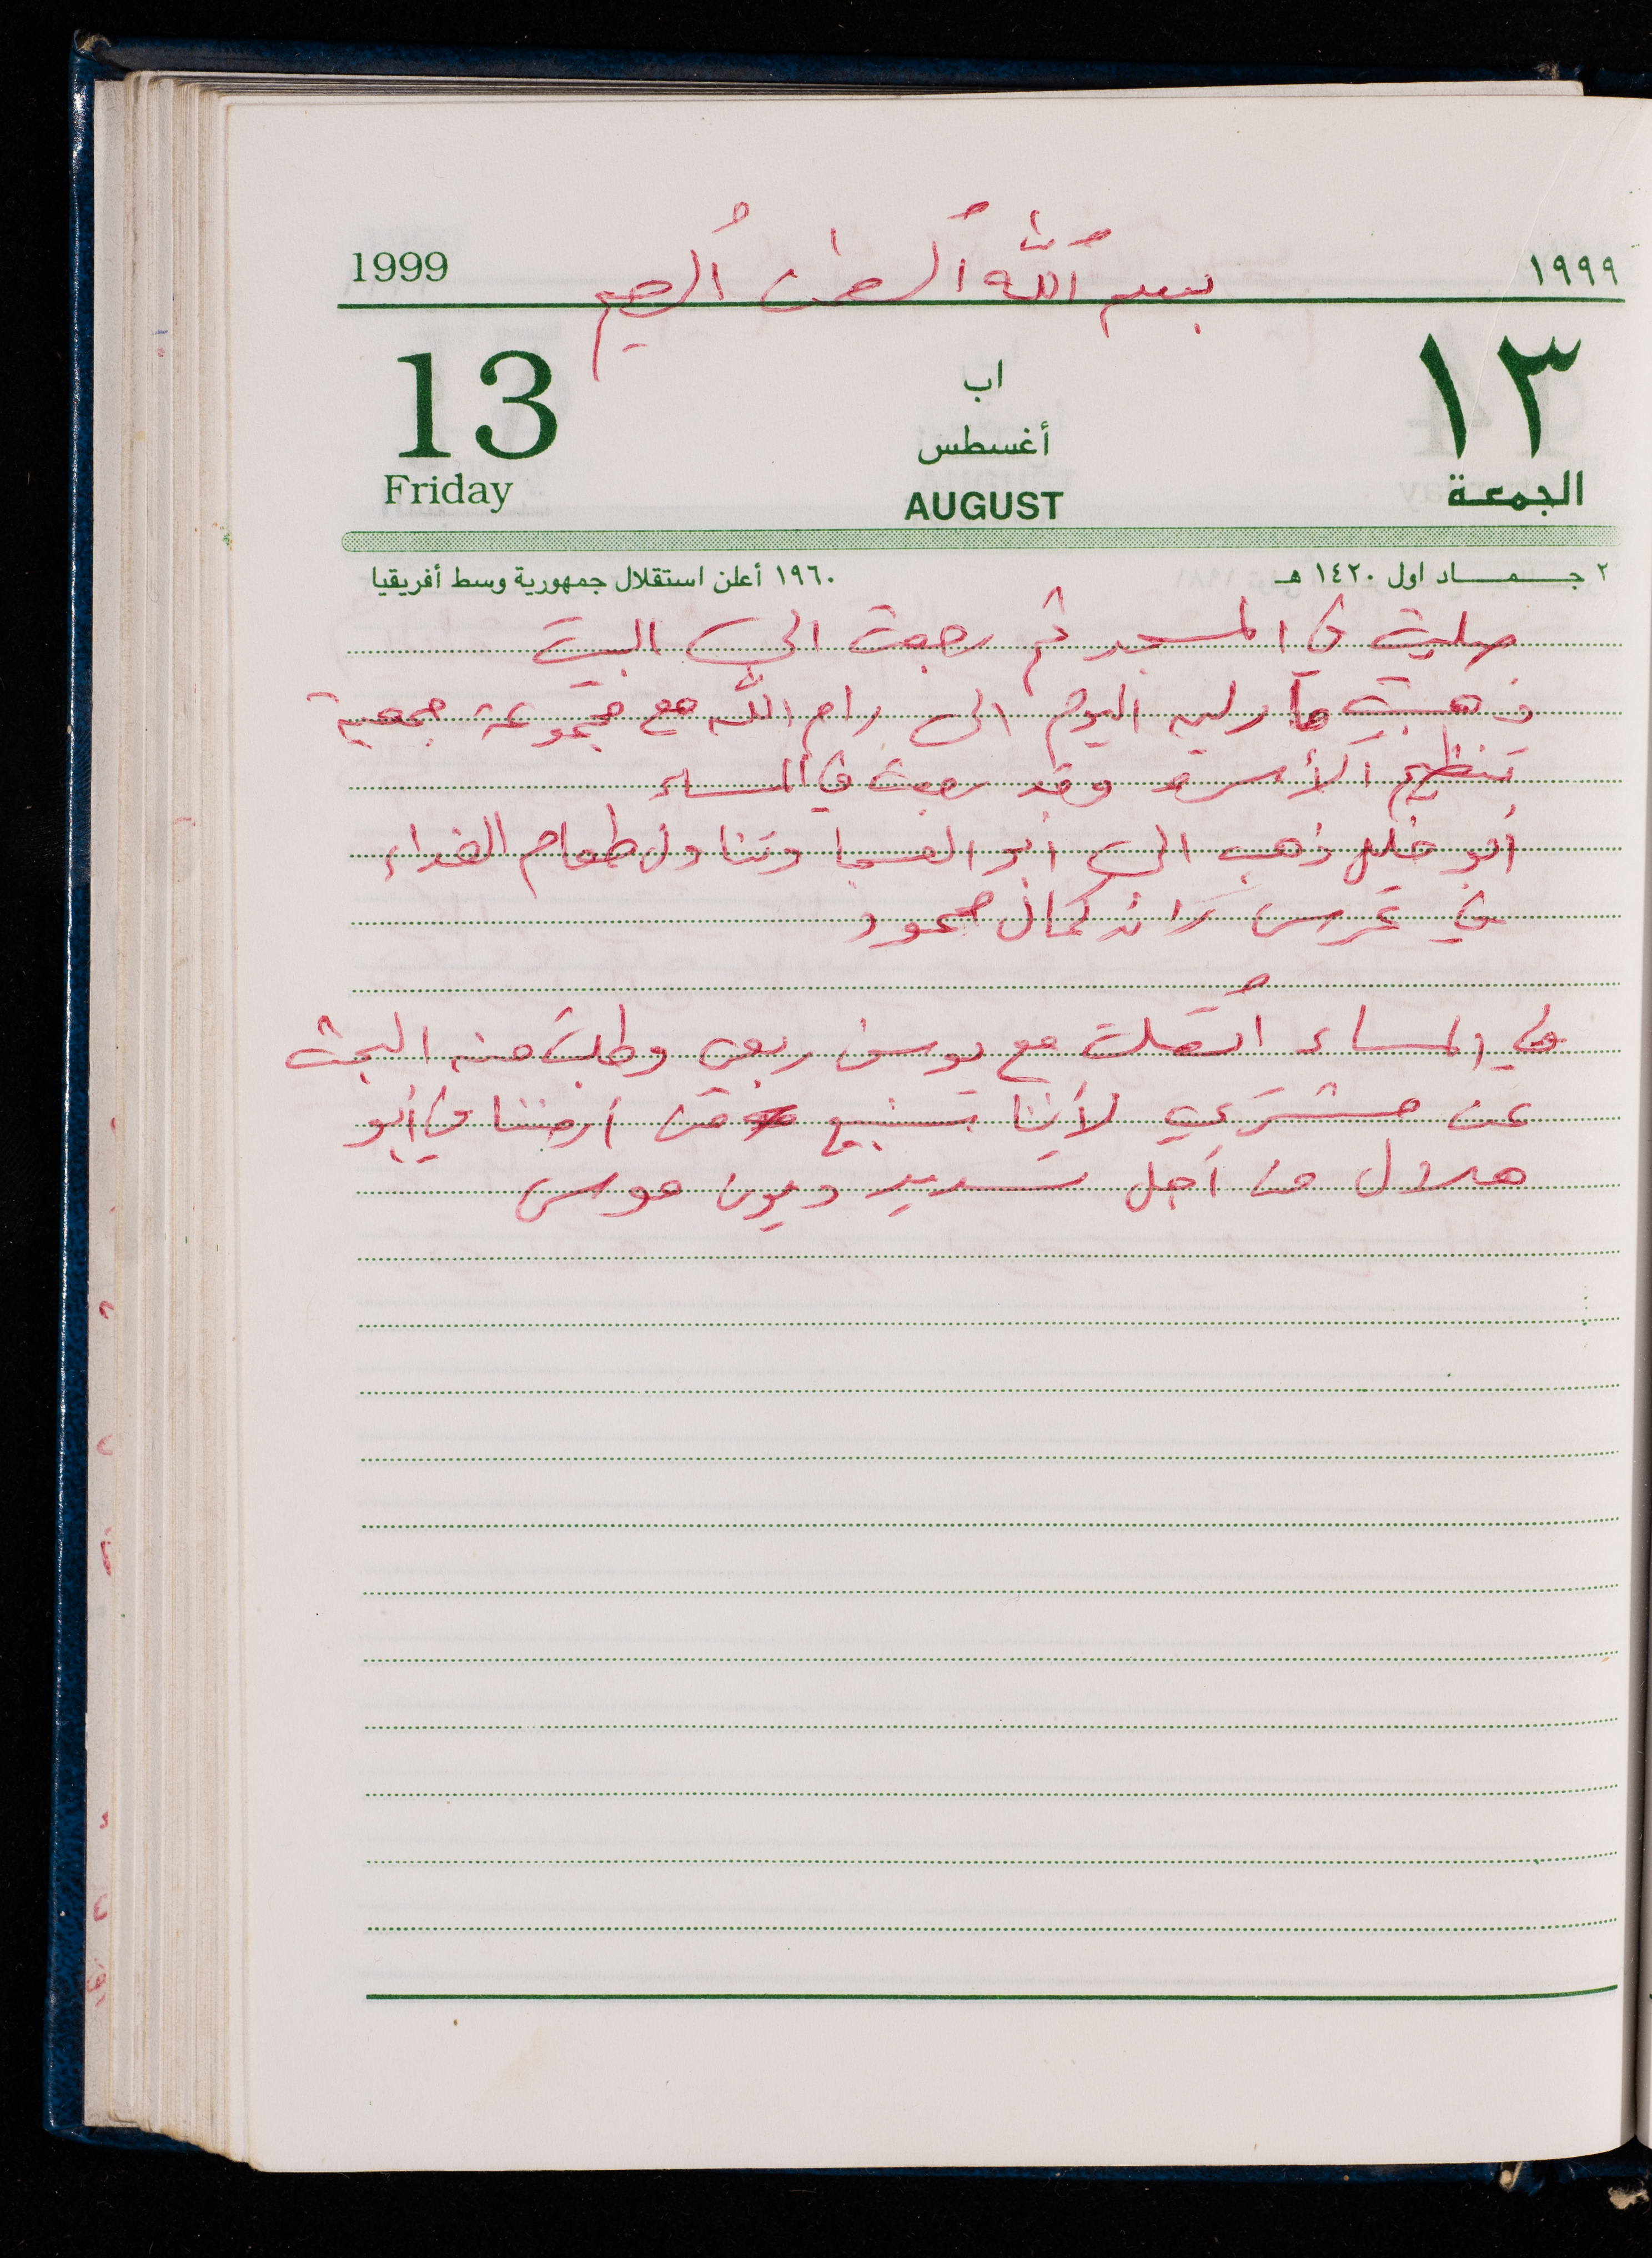 بسم الله الرحمن الرحيم
1999 ١٩٩٩
13 اب ١٣
أغسطس
Friday AUGUST الجمعة
٢ جمـــاد اول ١٤٢٠ هـ ١٩٦٠ أعلن استقلال جمهورية وسط أفريقيا
صليت في المسجد ثم رجعت الى البيت
ذهبت مارلين اليوم الى رام الله مع مجموعة جمعية
تنظيم الأسرة وقد رجعت في المساء
أبو خليل ذهب الى أبو العسجا وتناول طعام الغداء
في عرس رائد كمان محمود
في المساء أتصلت مع يوسف ربعي وطلبت منه البحث
عن مشتري لأننا سنبيع من أرضنا في أبو
هلال من أجل تسديد ديون موسى